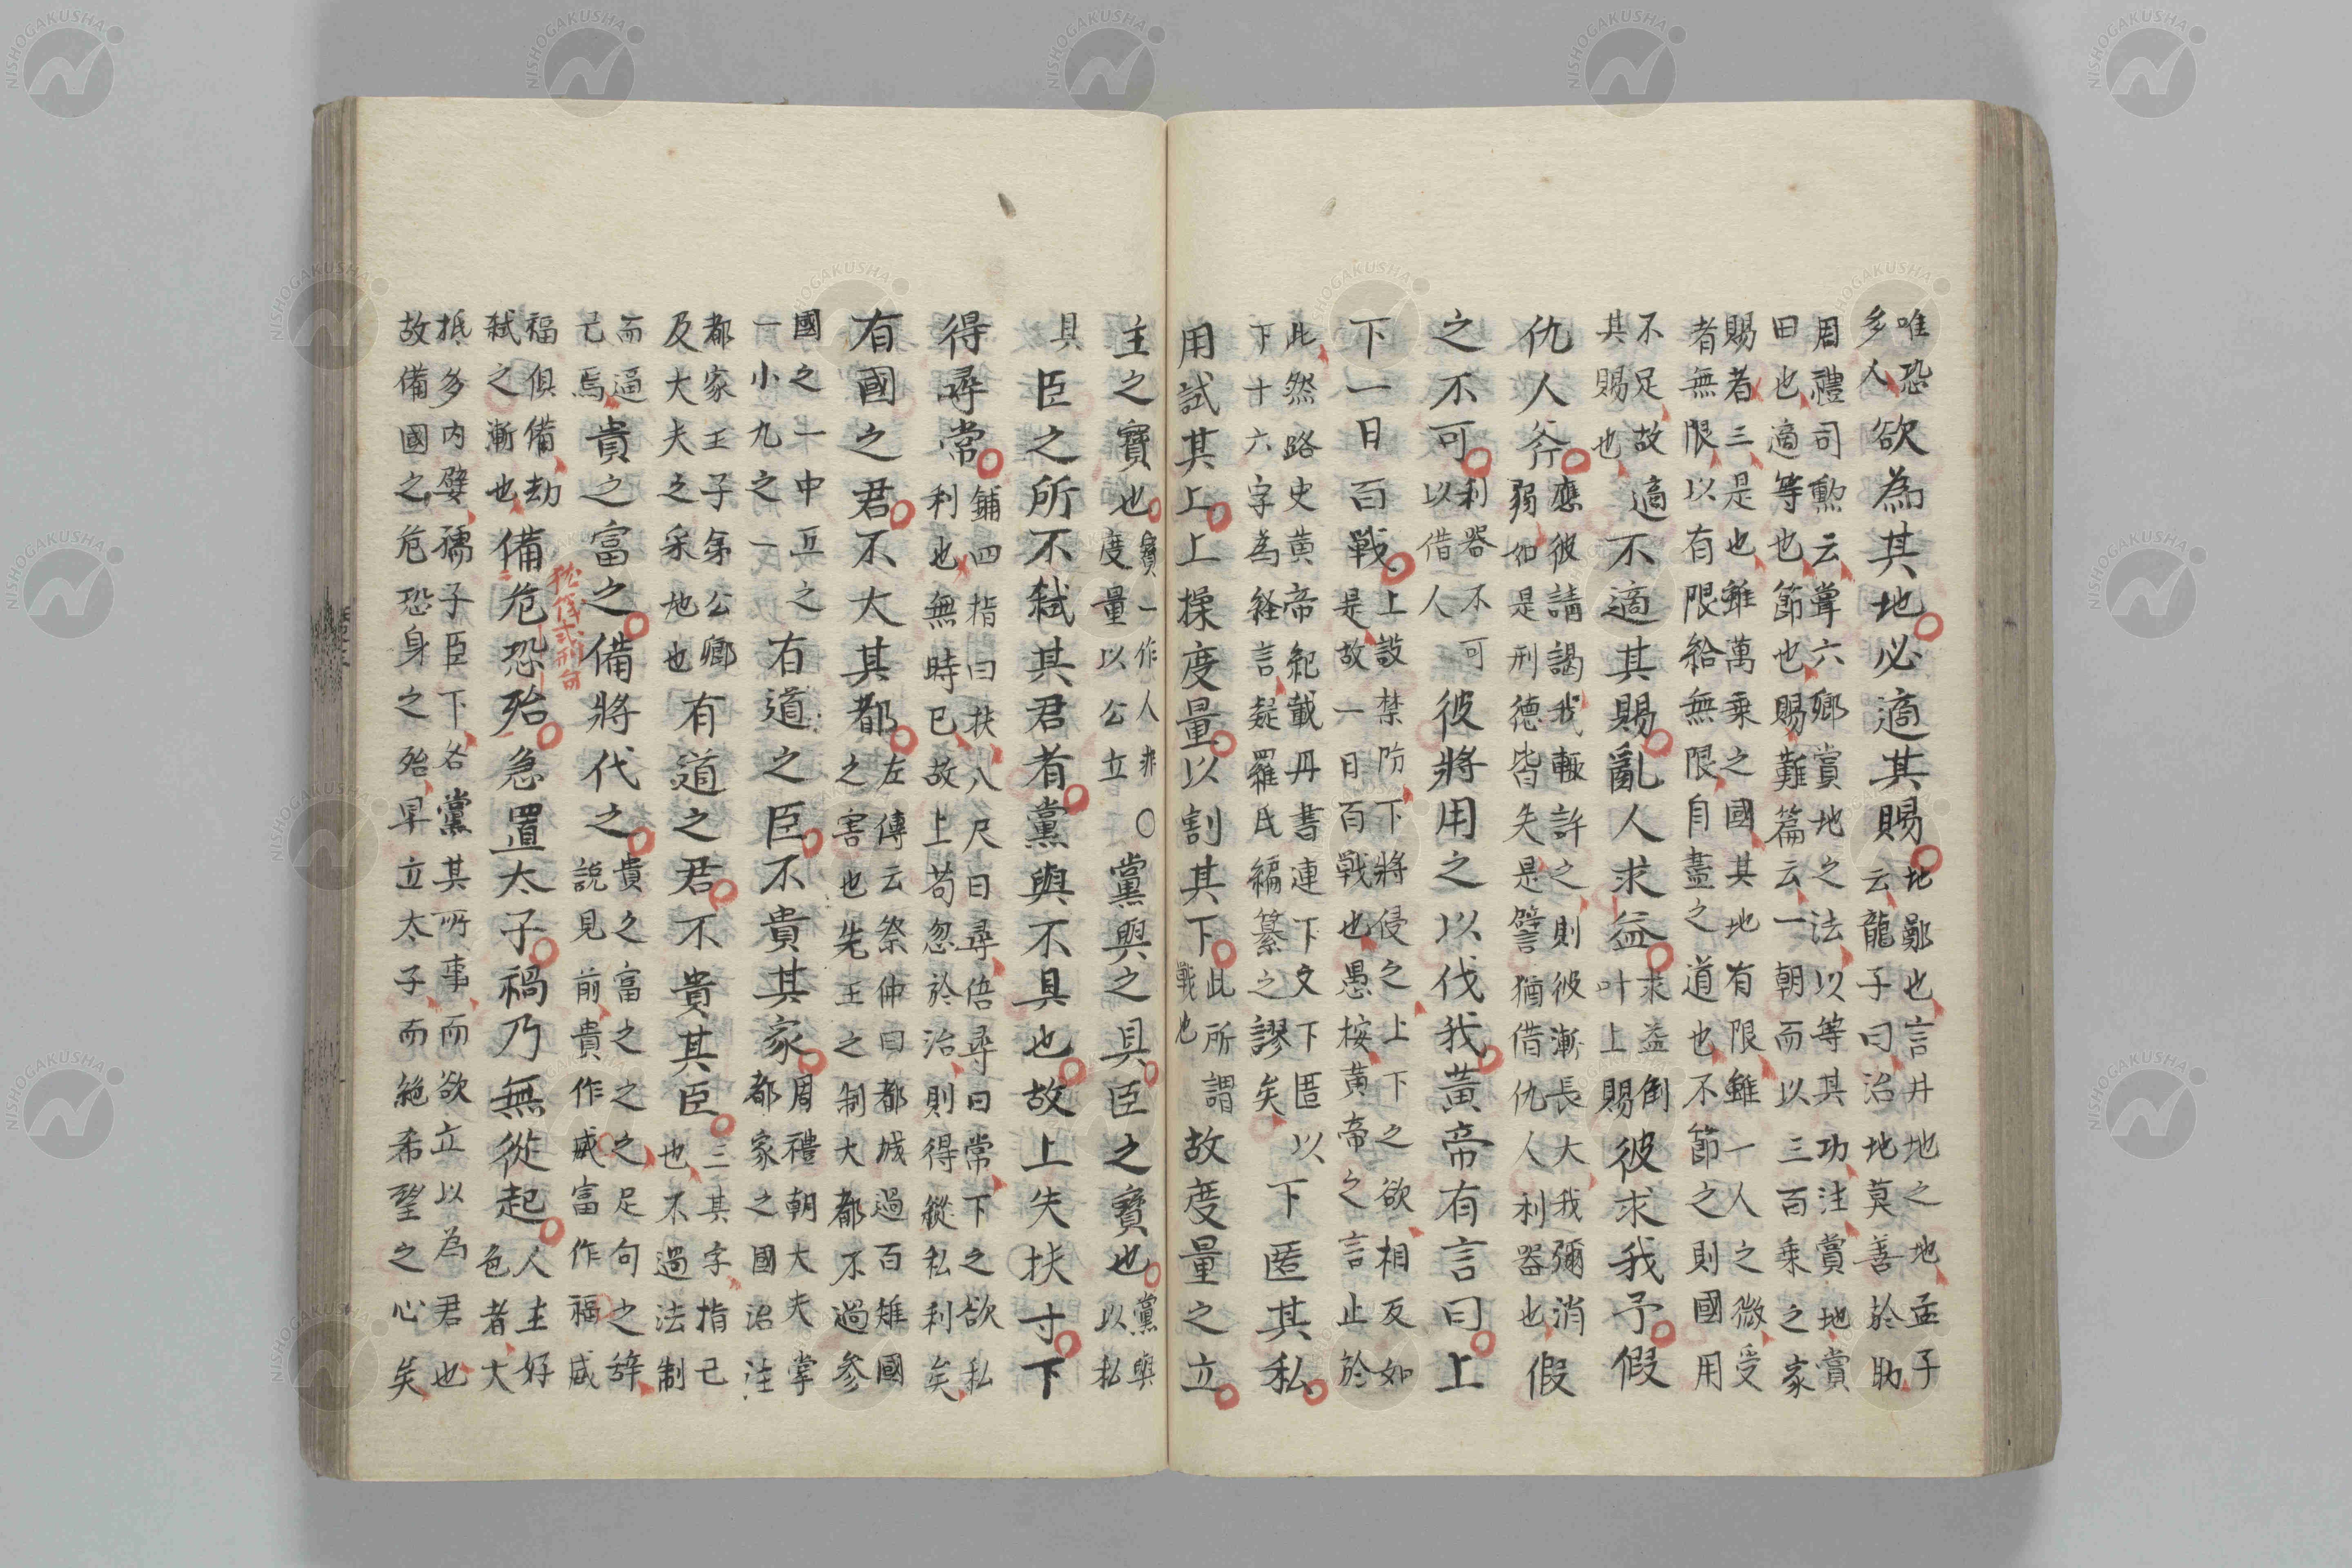 唯恐
多人
欲為其地必適其賜
地鄭也言井地之地孟子
云龍子曰治地莫善於助
周禮司勲云掌六鄉賞地之法以等其功注賞地賞
田也適等也節也賜難篇云一朝而以三百乘之家
賜者三是也雖萬乘之國其地有限雖一人之微受
者無限以有限給無限自盡之道也不節之則國用
不足故
其賜也
適不適其賜亂人求益
求益倒
叶上賜
彼求我予假
仇人斧
應彼請謁我輙許之則彼漸長大我彌消
弱如是刑德皆失是譬猶借仇人利器也
假
之不可
利器不可
以借人
彼將用之以伐我黃帝有言曰上
下一日百戰
上設禁防下將侵之上下之欲相反如
是故一日百戰也愚桉黃帝之言止於
此然路史黄帝紀載丹書連下文下匿以
下十六字為経言疑羅氏編纂之謬矣
下匿其私
用試其上上操度量以割其下
此所謂
戰也
故度量之立
主之寶也
寶一作人非
度量以公立
○黨與之具臣之寶也
黨與
以私
具臣之所不弒其君者黨與不具也故上失扶寸下
得尋常
鋪四指曰扶八尺曰尋倍尋曰常下之欲私
利也無時已故上苟忽於治則得縱私利矣
有國之君不大其都
左傳云祭仲曰都城過百雉國
之害也先王之制大都不過參
國之一中五之
一小九之一
有道之臣不貴其家
周禮朝大夫掌
都家之國治注
都家王子弟公卿
及大夫之采地也
有道之君不貴其臣
三其字指己
也不過法制
而逼
己焉
貴之富之備將代之
貴之富之之之足句之辞
説見前貴作威富作福威
福俱備劫
弒之漸也
備危恐殆急置太子禍乃無從起
人主好
色者大
抵多内嬖孺子臣下各黨其所事而欲立以為君也
故備國之危恐身之殆早立太子而絶希望之心矣